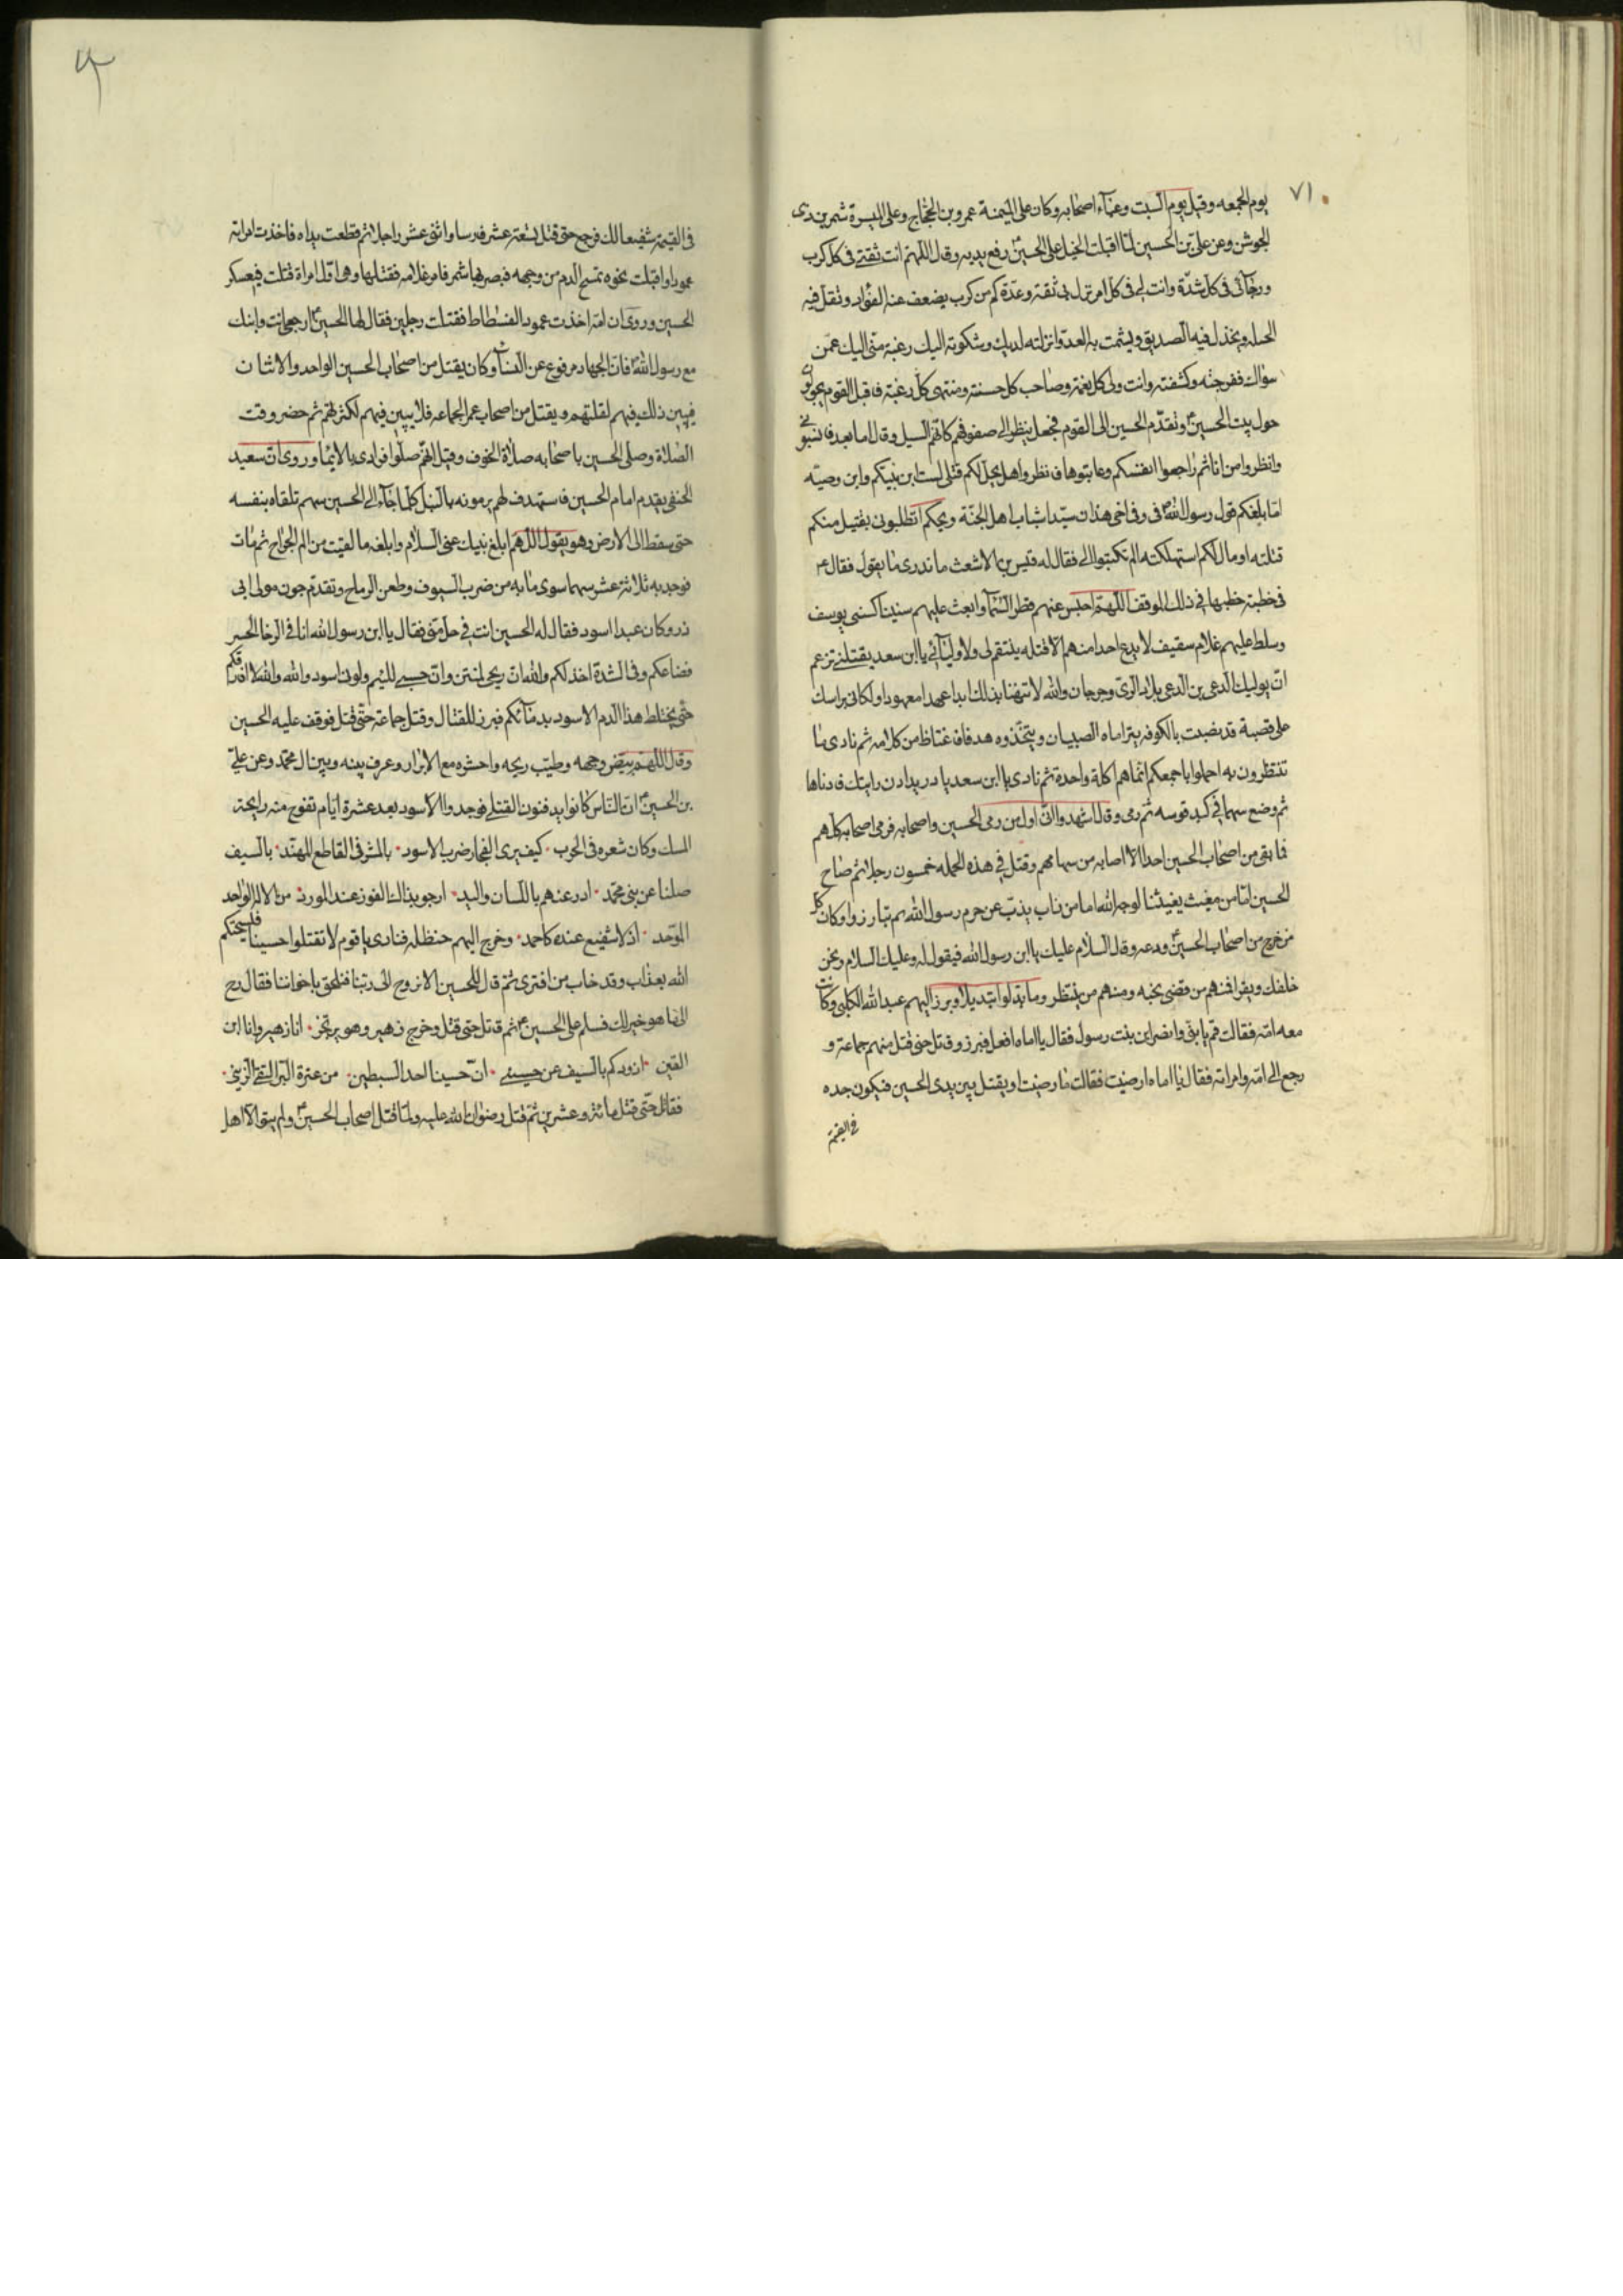 ٧١
يوم الجمعه وقيل يوم السبت وعبّاء اصحابه وكان على الميمنة عمرو بن الحجّاج وعلى الميسرة شمر بن ذى
الجوشن وعن علىّ بن الحسين لمّا اقبلت الخيل على الحسين رفع يديه وقال اللهم انت ثقتى فى كل كرب
ورجآئى فى كل شدّة وانت لى فى كل امر نزل بى ثقة وعدّة كم من كرب يضعف عنه الفؤاد وتقل فيه
الحيله ويخذل فيه الصديق ويشمت به العدو انزلته لديك وشكوته اليك رغبة منّى اليك عمّن
سواك ففرجته وكشفته وانت ولى كل نعمة وصاحب كل حسنة ومنتهى كل رغبة فاقبل القوم يجولون
حول بيت الحسين وتقدّم الحسين الى القوم فجعل ينظر الى صفوفهم كانّهم السيل وقال اما بعد فانسبونى
وانظروا من انا ثم راجعوا انفسكم وعاتبوها فانظروا هل يحل لكم قتلى الست ابن نبيّكم وابن وصيّه
امّا بلغكم قول رسول الله فى وفى اخى هذان سيّدا شباب اهل الجنّة ويحكم اتطلبونى بقتيل منكم
قتلته او مال لكم استهلكته الم تكتبوا الى فقال له قيس بن الاشعث ما ندرى ما يقول فقال
فى خطبة خطبها فى ذلك الموقف اللهمّ احبس عنهم قطر السّمآ وابعث عليهم سنينا كسنى يوسف
وسلط عليهم غلام سقيف لا يدع احدا منهم الّا قتله ينتقم لى ولاوليآئى يا ابن سعد يقتلنى تزعم
انّ يوليك الدعى بن الدعى بلاد الرّى وجرجان والله لا تتهنّا بذلك ابدا عهدا معهودا ولكانى براسك
على قصبة قد نصبت بالكوفه يتراماه الصبيان ويتخّذوه هدفا فاغتاظ من كلامه ثم نادى ما
تنتظرون به احملوا باجمعكم انّما هم اكلة واحدة ثم نادى يا ابن سعد يا دريد ادن رايتك فادناها
ثم وضع سهما فى كبد قوسه ثم رمى وقال اشهدوا انّى اول من رمى الحسين واصحابه فرمى اصحابه كلهم
فما بقى من اصحاب الحسين احدا الّا اصابه من سهامهم وقتل فى هذه الحمله خمسون رجلا ثم صاح
الحسين امّا من مغيث يغيثنا لوجه الله اما من ذاب يذبّ عن حرم رسول الله ثم تبارزوا وكان كل
من خرج من اصحاب الحسين ودعه وقال السلام عليك يا ابن رسول الله فيقول له وعليك السلام ونحن
خلفك ويقرا فمنهم من قضى نحبه ومنهم من ينتظر وما بدّلوا تبديلا وبرز اليهم عبد الله الكلبى وكانت
معه امّه فقالت قم يا بنىّ وانصر ابن بنت رسول فقال يا اماه افعل فبرز وقاتل حتى قتل منهم جماعة و
رجع الى امّه وامراته فقال يا اماه ارضيت فقالت ما رضيت او يقتل بين يدى الحسين فيكون جده
فى القيمة
فى القيمة شفيعا لك فرجع حتى قتل تسعة عشر فارسا واثنى عشر راجلا ثم قطعت يداه فاخذت امراته
عمودا واقبلت نحوه تمسح الدم من وجهه فبصر بها شمر فامر غلامه فقتلها وهى اوّل امراة قتلت فى عسكر
الحسين وروى ان امّه اخذت عمود الفسطاط فقتلت رجلين فقال لها الحسين ارجعى انت وابنك
مع رسول الله فانّ الجهاد مرفوع عن النسآ وكان يقتل من اصحاب الحسين الواحد والاثنان
فيبين ذلك فيهم لقلتهم ويقتل من اصحاب عمر الجماعه فلا يبين فيهم لكثرتهم ثم حضر وقت
الصّلاة وصلى الحسين باصحابه صلاة الخوف وقيل انّهم صلّوا فرادى بالايمٓا وروى انّ سعيد
الحنفى يقدم امام الحسين فاستهدف لهم يرمونه بالنبل كلّما جآء الى الحسين سهم تلقاه بنفسه
حتى سقط الى الارض وهو يقول اللهم ابلغ نبيك عنى السلام وابلغه ما لقيت من الم الجراح ثم مات
فوجد به ثلاثة عشر سهما سوى ما به من ضرب السيوف وطعن الرماح وتقدّم جون مولى ابى
ذر وكان عبدا اسود فقال له الحسين انت فى حل منّى فقال يا ابن رسول الله انا فى الرخا الحس
قصاعكم وفى الشدة اخذلكم والله انّ ريحى لمنتن وانّ حسبى للئيم ولونى اسود والله والله لا افارقكم
حتّى يختلط هذا الدم الاسود بدمآئكم فبرز للقتال وقتل جماعة حتّى قتل فوقف عليه الحسين
وقال اللهم بيّض وجهه وطيّب ريحه واحشره مع الابرار وعرف بينه وبين ال محمّد وعن علىّ
بن الحسين انّ النّاس كانوا يدفنون القتلى فوجدوا الاسود بعد عشرة ايّام تفوح منه رايحة
المسك وكان شعره فى الحرب ٠ كيف يرى الفجار ضرب الاسود ٠ بالمشرفى القاطع المهنّد ٠ بالسيف
صلتا عن بنى محمّد ٠ ادر عنهم باللسان واليد ٠ ارجو بذاك الفوز عند المورد ٠ من الاله الواحد
الموّحد ٠ اذ لا شفيع عنده كاحمد ٠ وخرج اليهم حنظله فنادى يا قوم لا تقتلوا حسينا فيسحتكم
الله بعذاب وقد خاب من افترى ثمّ قال للحسين الا نروح الى ربّنا فنلحق باخواننا فقال رح
الى ما هو خير لك فسلم على الحسين ثم قاتل حتى قتل وخرج زهير وهو يرتجز ٠ انا زهير وانا ابن
القين ٠ ازودكم بالسيف عن حسين ٠ انّ حسينا احد السبطين ٠ من عترة البّر التقى الزّين ٠
فقاتل حتّى قتل مائة وعشرين ثمّ قتل رضوان الله عليه ولمّا قتل اصحاب الحسين ولم يبق الّا اهل